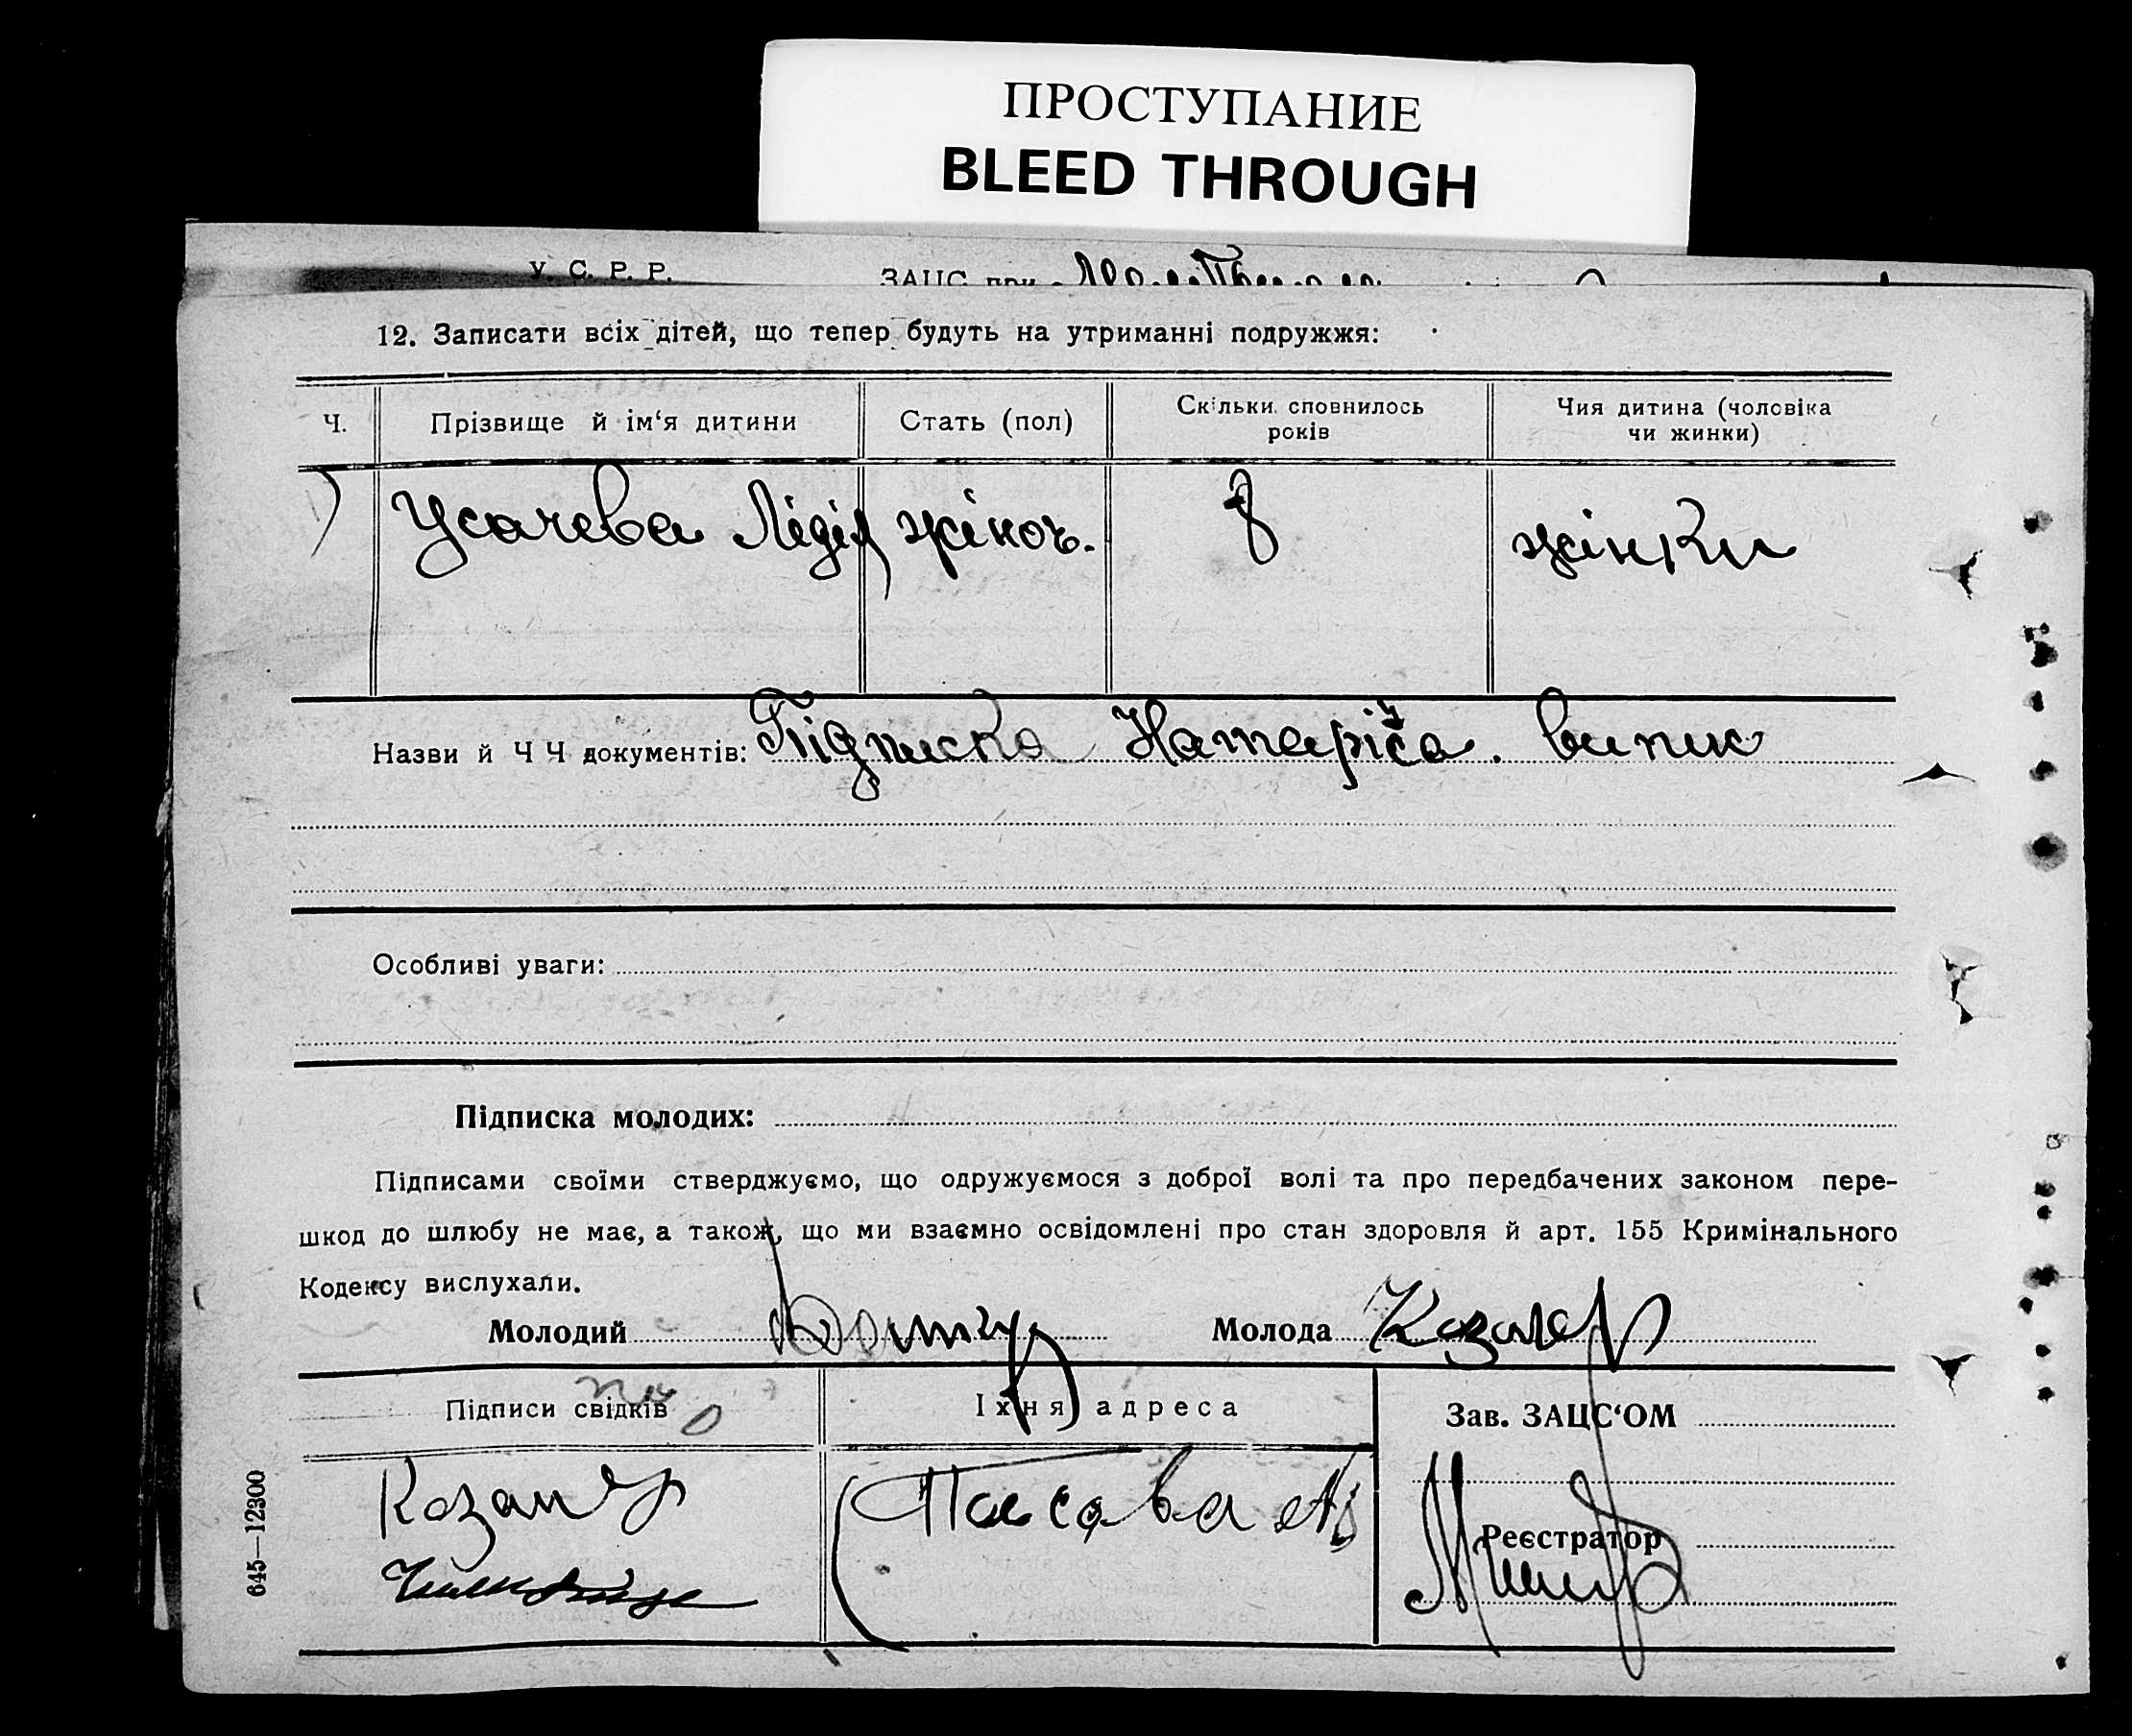 ПРОСТУПАНИЕ
BLEED THROUGH
У. С. Р. Р. ЗАЦС при
12. Записати всіх дітей, що тепер будуть на утриманні подружжя:
Ч. Прізвище й ім‘я дитини Стать (пол) Скільки сповнилось років Чия дитина (чоловіка чи жинки)
1) Усачева Лідія жіноч. 8 жінки
Назви й Ч Ч документів: Підписка випис
Особливі уваги:
Підписка молодих:
Підписами своїми стверджуємо, що одружуємося з доброї волі та про передбачених законом пере-
шкод до шлюбу не має, а також, що ми взаємно освідомлені про стан здоровля й арт. 155 Кримінального
Кодексу вислухали.
Молодий Молода
Підписи свідків Їхня адреса Зав. ЗАЦС‘ОМ
Реєстратор
645—12300